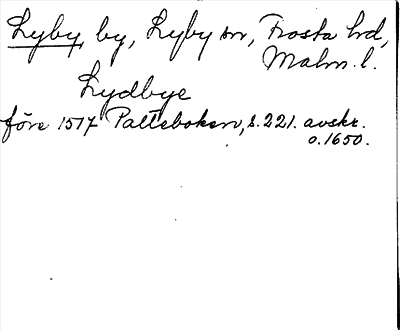 Lyby, by, Lyby sn, Frosta hd,
Malm. l.
Lydbye
före 1517 Palteboken, s. 221. avskr.
o. 1650.